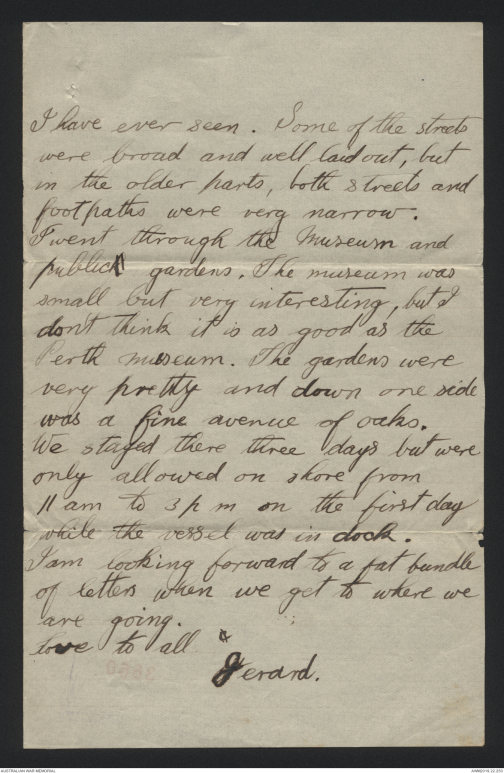 I have ever seen. Some of the streets
were broad and well laid out, but
in the older parts, both streets and
footpaths were very narrow.
I went through the Museum and
public gardens. The museum was
small but very interesting, but I
dont think it is as good as the
Perth museum. The gardens were
very pretty and down one side
was a fine avenue of oaks.
We stayed there three days but were
only allowed on shore from
11 am to 3 p m on the first day
while the vessel was in dock.
I am looking forward to a fat bundle
of letters when we get to where we
are going.
love to all
Gerard.
AUSTRALIAN WAR MEMORIAL